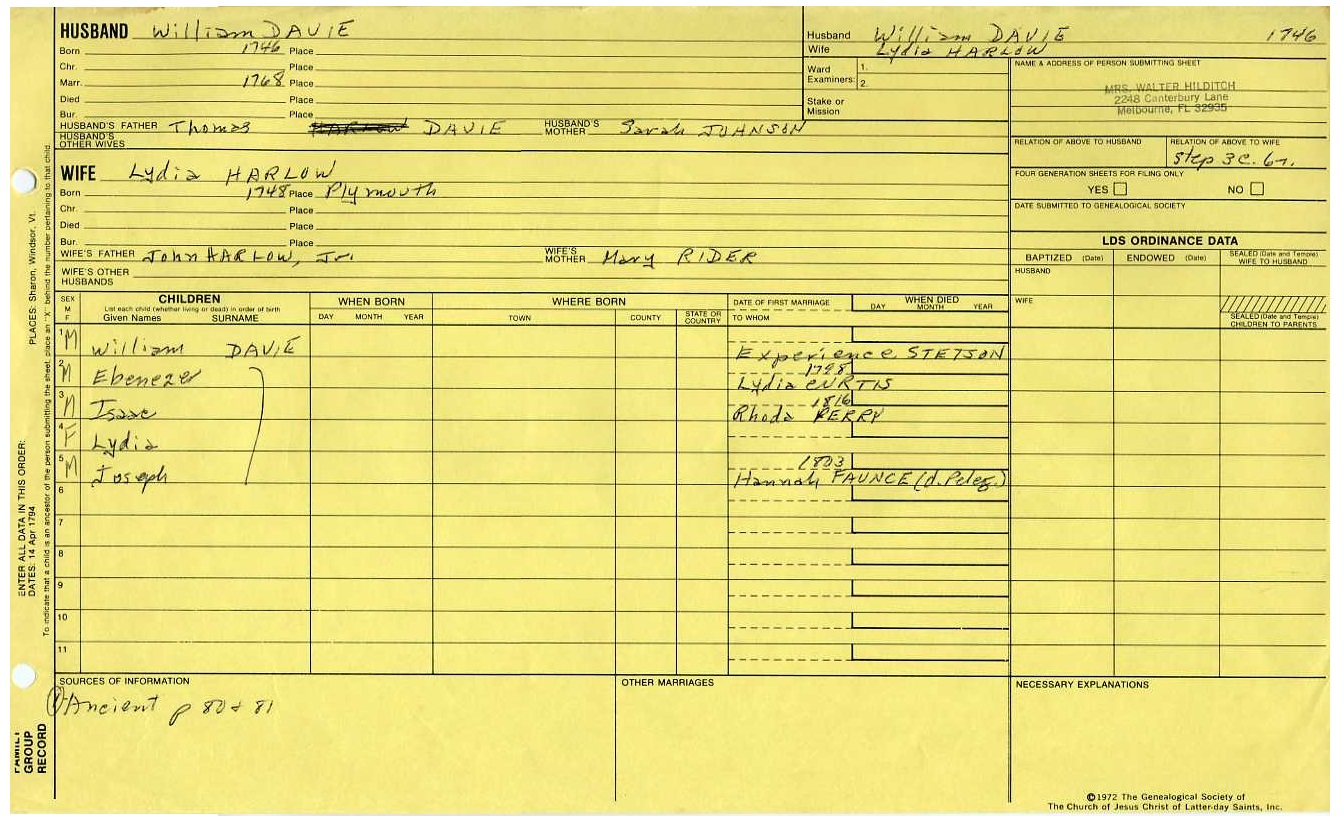 HUSBAND William DAVIE
Born 1746 Place
Chr. Place
Marr. 1768 Place
Died Place
Bur. Place
HUSBAND'S FATHER Thomas DAVIE HUSBAND'S MOTHER Sarah JOHNSON
HUSBAND'S OTHER WIVES
WIFE Lydia HARLOW
Born 1748 Place Plymouth
Chr. Place
Died Place
Bur. Place
WIFE'S FATHER John HARLOW, Jr. WIFE'S MOTHER Mary RIDER
WIFE'S OTHER HUSBANDS
Husband William DAVIE 1746
Wife Lydia HARLOW
Ward Examiners: 1. 2.
Stake or Mission
NAME & ADDRESS OF PERSON SUBMITTING SHEET
MRS. WALTER HILDITCH
2248 Canterbury Lane
Melbourne, FL 32935
RELATION OF ABOVE TO HUSBAND RELATION OF ABOVE TO WIFE
Step 3C. 6r.
FOUR GENERATION SHEETS FOR FILING ONLY
YES NO
DATE SUBMITTED TO GENEALOGICAL SOCIETY
LDS ORDINANCE DATA
BAPTIZED (Date) ENDOWED (Date) SEALED (Date and Temple) WIFE TO HUSBAND
HUSBAND
WIFE
SEALED (Date and Temple) CHILDREN TO PARENTS
SEX M F CHILDREN WHEN BORN WHERE BORN DATE OF FIRST MARRIAGE WHEN DIED
List each child (whether living or dead) in order of birth
Given Names SURNAME DAY MONTH YEAR TOWN COUNTY STATE OR COUNTRY TO WHOM DAY MONTH YEAR
1 M William DAVIE Experience STETSON
2 M Ebenezer 1798 Lydia CURTIS
3 M Isaac 1816 Rhoda PERRY
4 F Lydia
5 M Joseph 1803 Hannah FAUNCE (d. Peleg.)
6
7
8
9
10
11
SOURCES OF INFORMATION OTHER MARRIAGES NECESSARY EXPLANATIONS
① Ancient p 80 & 81
©1972 The Genealogical Society of
The Church of Jesus Christ of Latter-day Saints, Inc.
ENTER ALL DATA IN THIS ORDER:
DATES: 14 Apr 1794 PLACES: Sharon, Windsor, Vt.
To indicate that a child is an ancestor of the person submitting the sheet, place an "X" behind the number pertaining to that child.
FAMILY GROUP RECORD